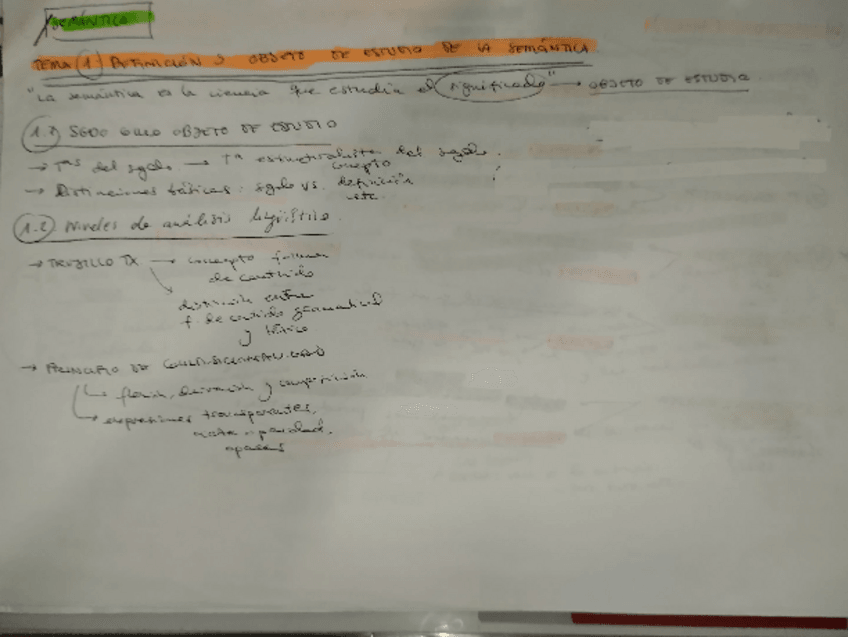 SEMÁNTICA
TEMA 1 DEFINICIÓN Y OBJETO DE ESTUDIO DE LA SEMÁNTICA
"La semántica es la ciencia que estudia el significado" → OBJETO DE ESTUDIO
1.1 SGDO COMO OBJETO DE ESTUDIO
→ Tas del sgdo. → Ta estructuralista del sgdo.
→ Distinciones básicas: sgdo vs. concepto
definición
1.2 Niveles de análisis lingüístico
→ TRUJILLO → concepto forma
de contenido
distinción entre
f. de contenido gramatical
y léxico
→ PRINCIPIO DE
flexión, derivación y composición
expresiones transparentes,
opacas